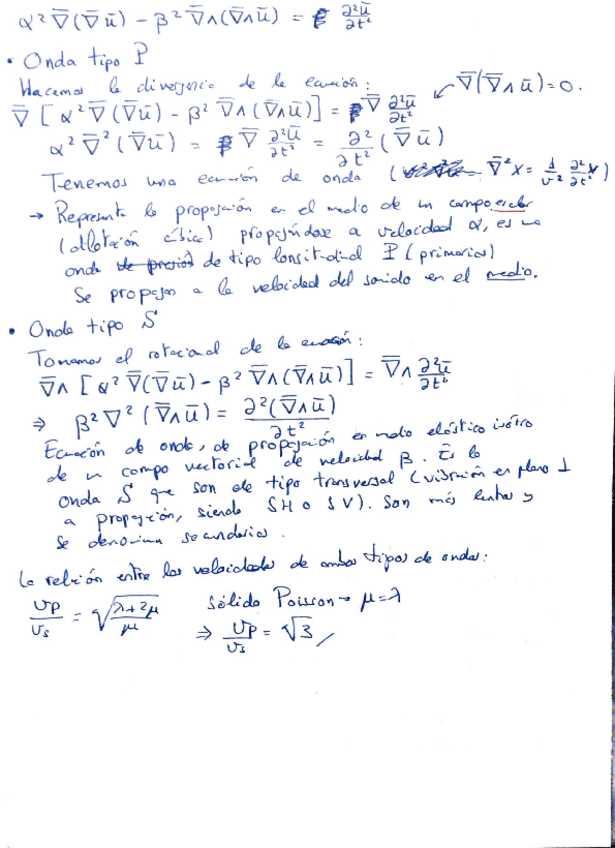 α² ∇̄(∇̄ū) − β² ∇̄∧(∇̄∧ū) = ∂²ū/∂t²
• Onda tipo P
Hacemos la divergencia de la ecuación: ∇̄(∇̄∧ū)=0.
∇̄ [α² ∇̄(∇̄ū) − β² ∇̄∧(∇̄∧ū)] = ∇̄ ∂²ū/∂t²
α² ∇̄² (∇̄ū) = ∇̄ ∂²ū/∂t² = ∂²/∂t² (∇̄ū)
Tenemos una ecuación de onda ( ∇̄²X = 1/v² ∂²X/∂t² )
→ Representa la propagación en el medio de un campo escalar
(dilatación cúbica) propagándose a velocidad α, es una
onda de tipo longitudinal P (primarias)
Se propagan a la velocidad del sonido en el medio.
• Onda tipo S
Tomamos el rotacional de la ecuación:
∇̄∧ [α² ∇̄(∇̄ū) − β² ∇̄∧(∇̄∧ū)] = ∇̄∧ ∂²ū/∂t²
⇒ β² ∇² (∇̄∧ū) = ∂²(∇̄∧ū)/∂t²
Ecuación de onda, de propagación en medio elástico isótro
de un campo vectorial de velocidad β. Es la
onda S que son de tipo transversal (vibración en plano ⊥
a propagación, siendo SH o SV). Son más lentas y
se denominan secundarias.
La relación entre las velocidades de ambos tipos de ondas:
vp/vs = √((λ+2μ)/μ) Sólido Poisson → μ=λ
⇒ vp/vs = √3